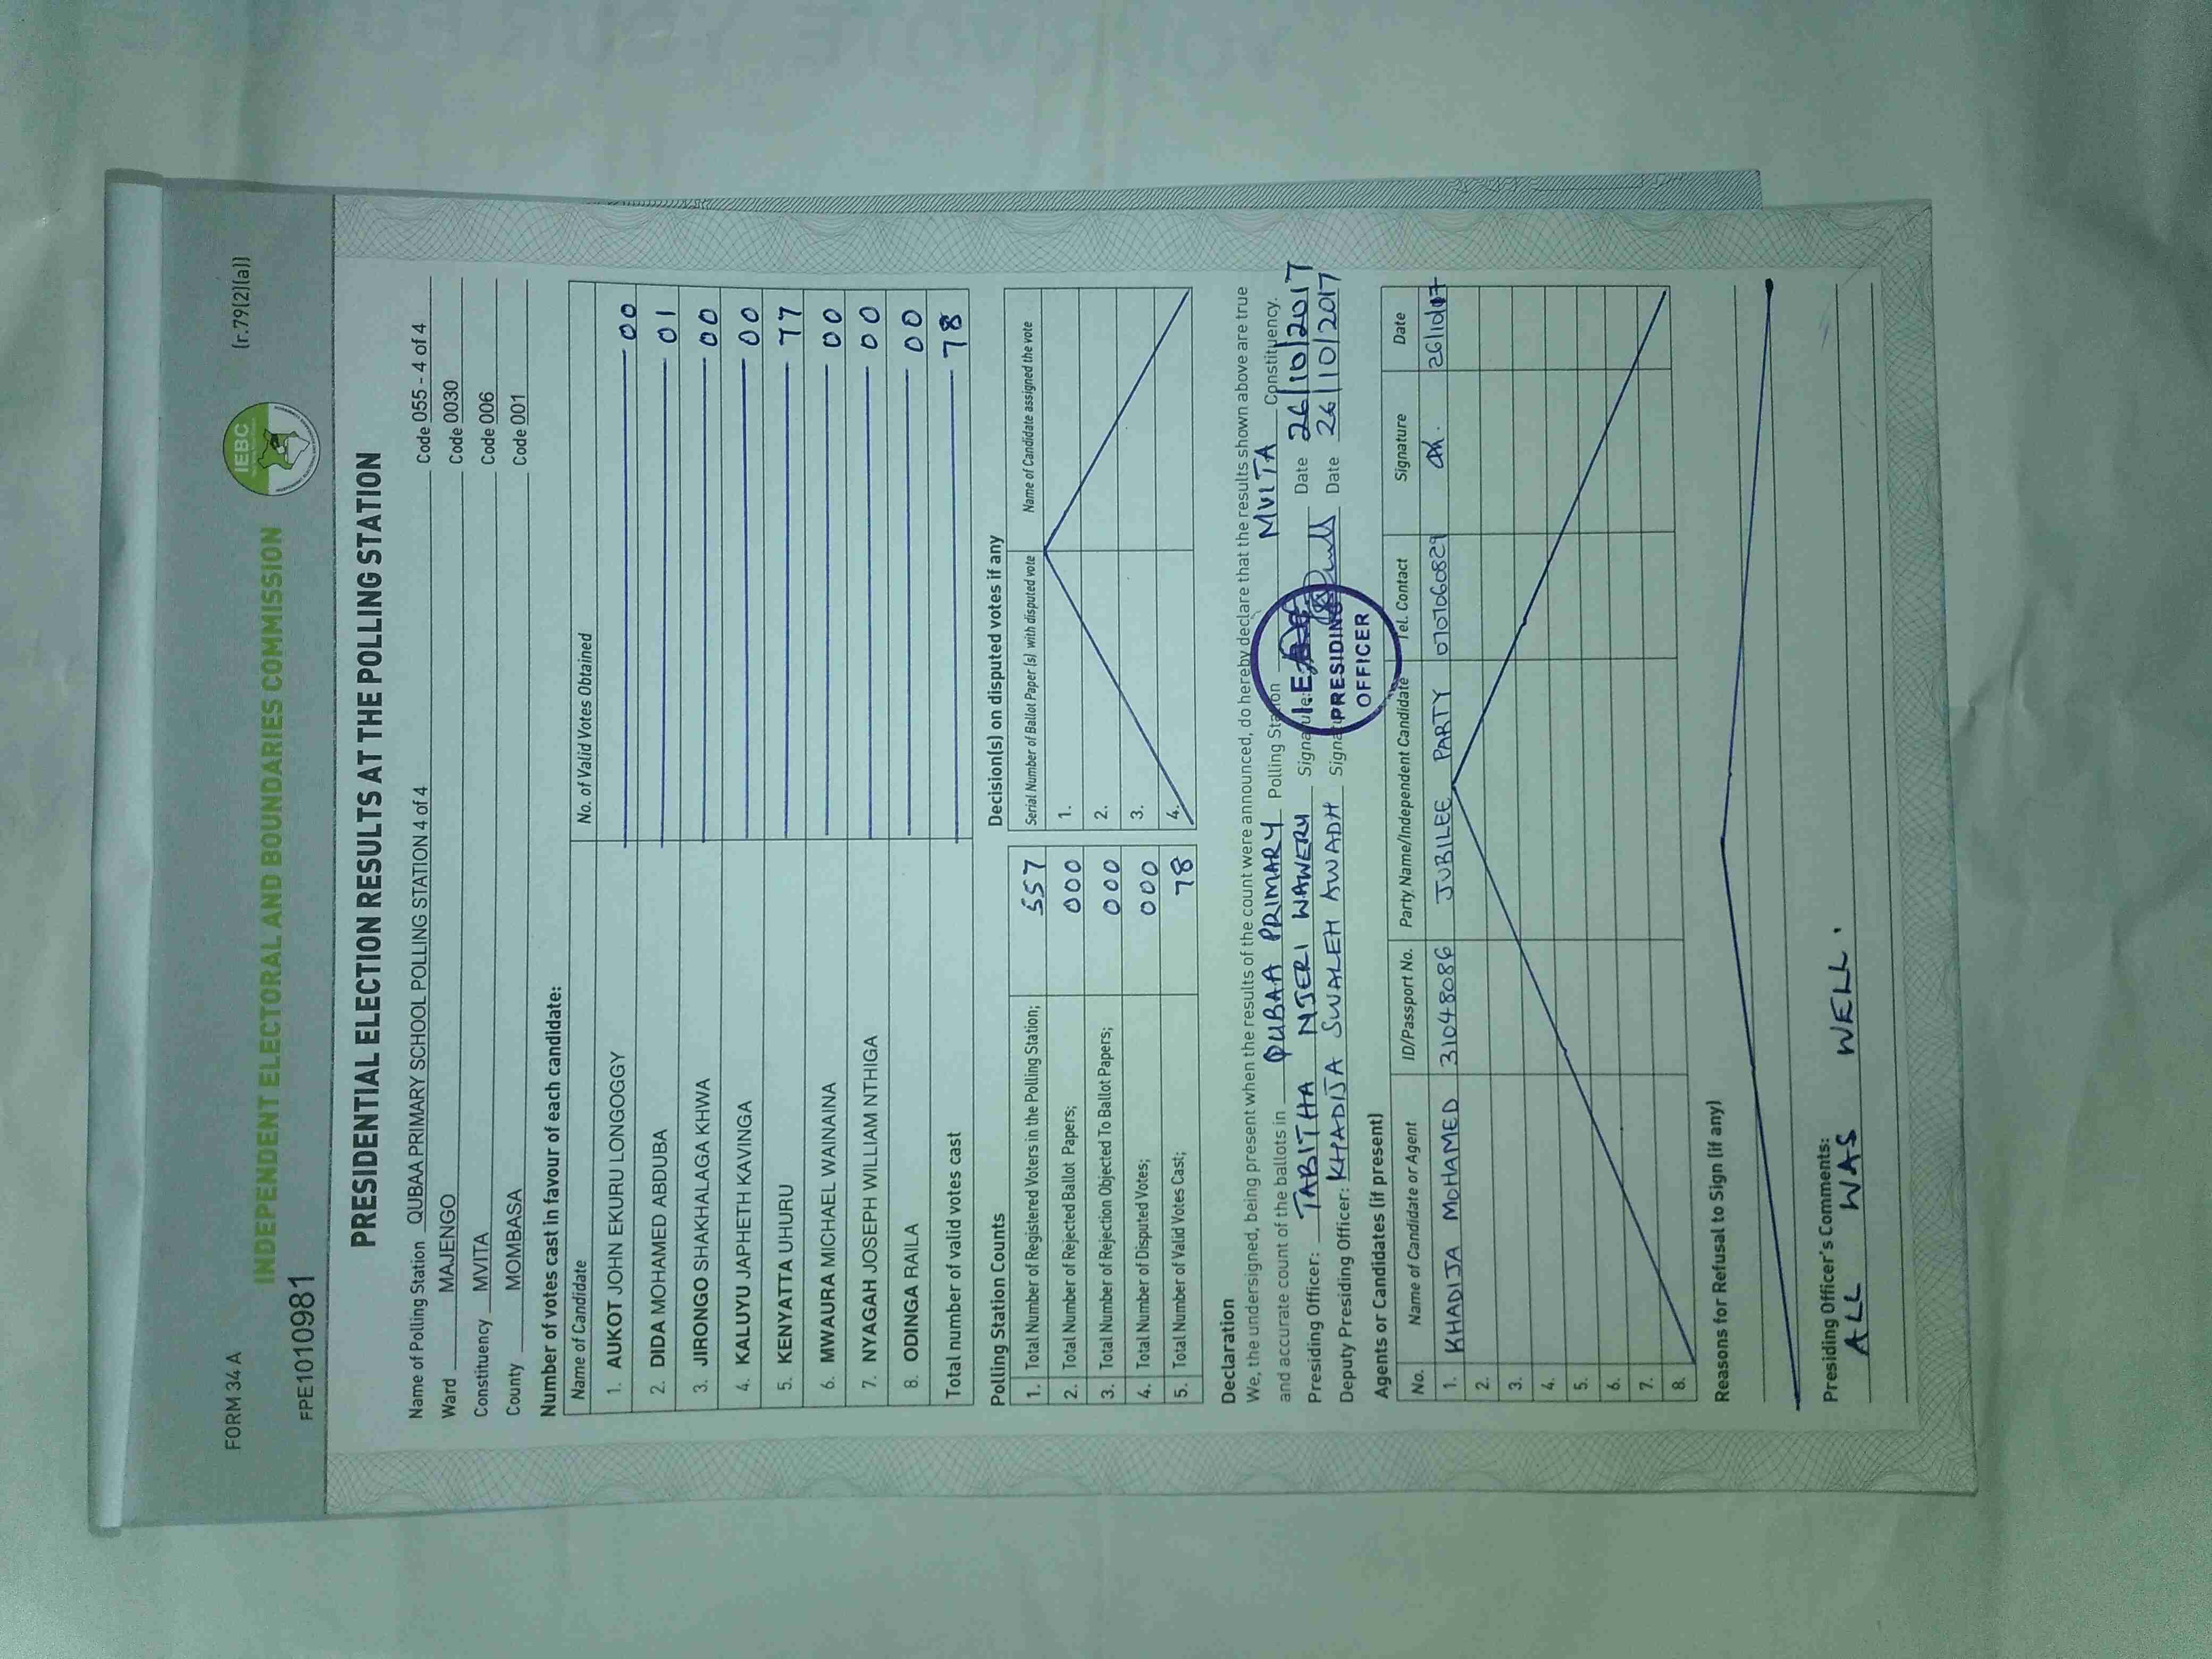 FORM 34 A
(r.79(2)(a))
INDEPENDENT ELECTORAL AND BOUNDARIES COMMISSION
IEBC
FPE1010981
PRESIDENTIAL ELECTION RESULTS AT THE POLLING STATION
Name of Polling Station QUBAA PRIMARY SCHOOL POLLING STATION 4 of 4 Code 055 - 4 of 4
Ward MAJENGO Code 0030
Constituency MVITA Code 006
County MOMBASA Code 001
Number of votes cast in favour of each candidate:
Name of Candidate No. of Valid Votes Obtained
1. AUKOT JOHN EKURU LONGOGGY 00
2. DIDA MOHAMED ABDUBA 01
3. JIRONGO SHAKHALAGA KHWA 00
4. KALUYU JAPHETH KAVINGA 00
5. KENYATTA UHURU 77
6. MWAURA MICHAEL WAINAINA 00
7. NYAGAH JOSEPH WILLIAM NTHIGA 00
8. ODINGA RAILA 00
Total number of valid votes cast 78
Polling Station Counts
1. Total Number of Registered Voters in the Polling Station; 557
2. Total Number of Rejected Ballot Papers; 000
3. Total Number of Rejection Objected To Ballot Papers; 000
4. Total Number of Disputed Votes; 000
5. Total Number of Valid Votes Cast; 78
Decision(s) on disputed votes if any
Serial Number of Ballot Paper (s) with disputed vote Name of Candidate assigned the vote
1.
2.
3.
4.
Declaration
We, the undersigned, being present when the results of the count were announced, do hereby declare that the results shown above are true
and accurate count of the ballots in QUBAA PRIMARY Polling Station MVITA Constituency.
Presiding Officer: TABITHA NJERI WAWERU Signature: Date 26/10/2017
Deputy Presiding Officer: KHADIJA SWALEH AWADH Date 26/10/2017
PRESIDING
OFFICER
Agents or Candidates (if present)
No. Name of Candidate or Agent ID/Passport No. Party Name/Independent Candidate Tel. Contact Signature Date
1. KHADIJA MOHAMED 31048086 JUBILEE PARTY 0707060829 26/10/17
2.
3.
4.
5.
6.
7.
8.
Reasons for Refusal to Sign (if any)
Presiding Officer's Comments:
ALL WAS WELL.